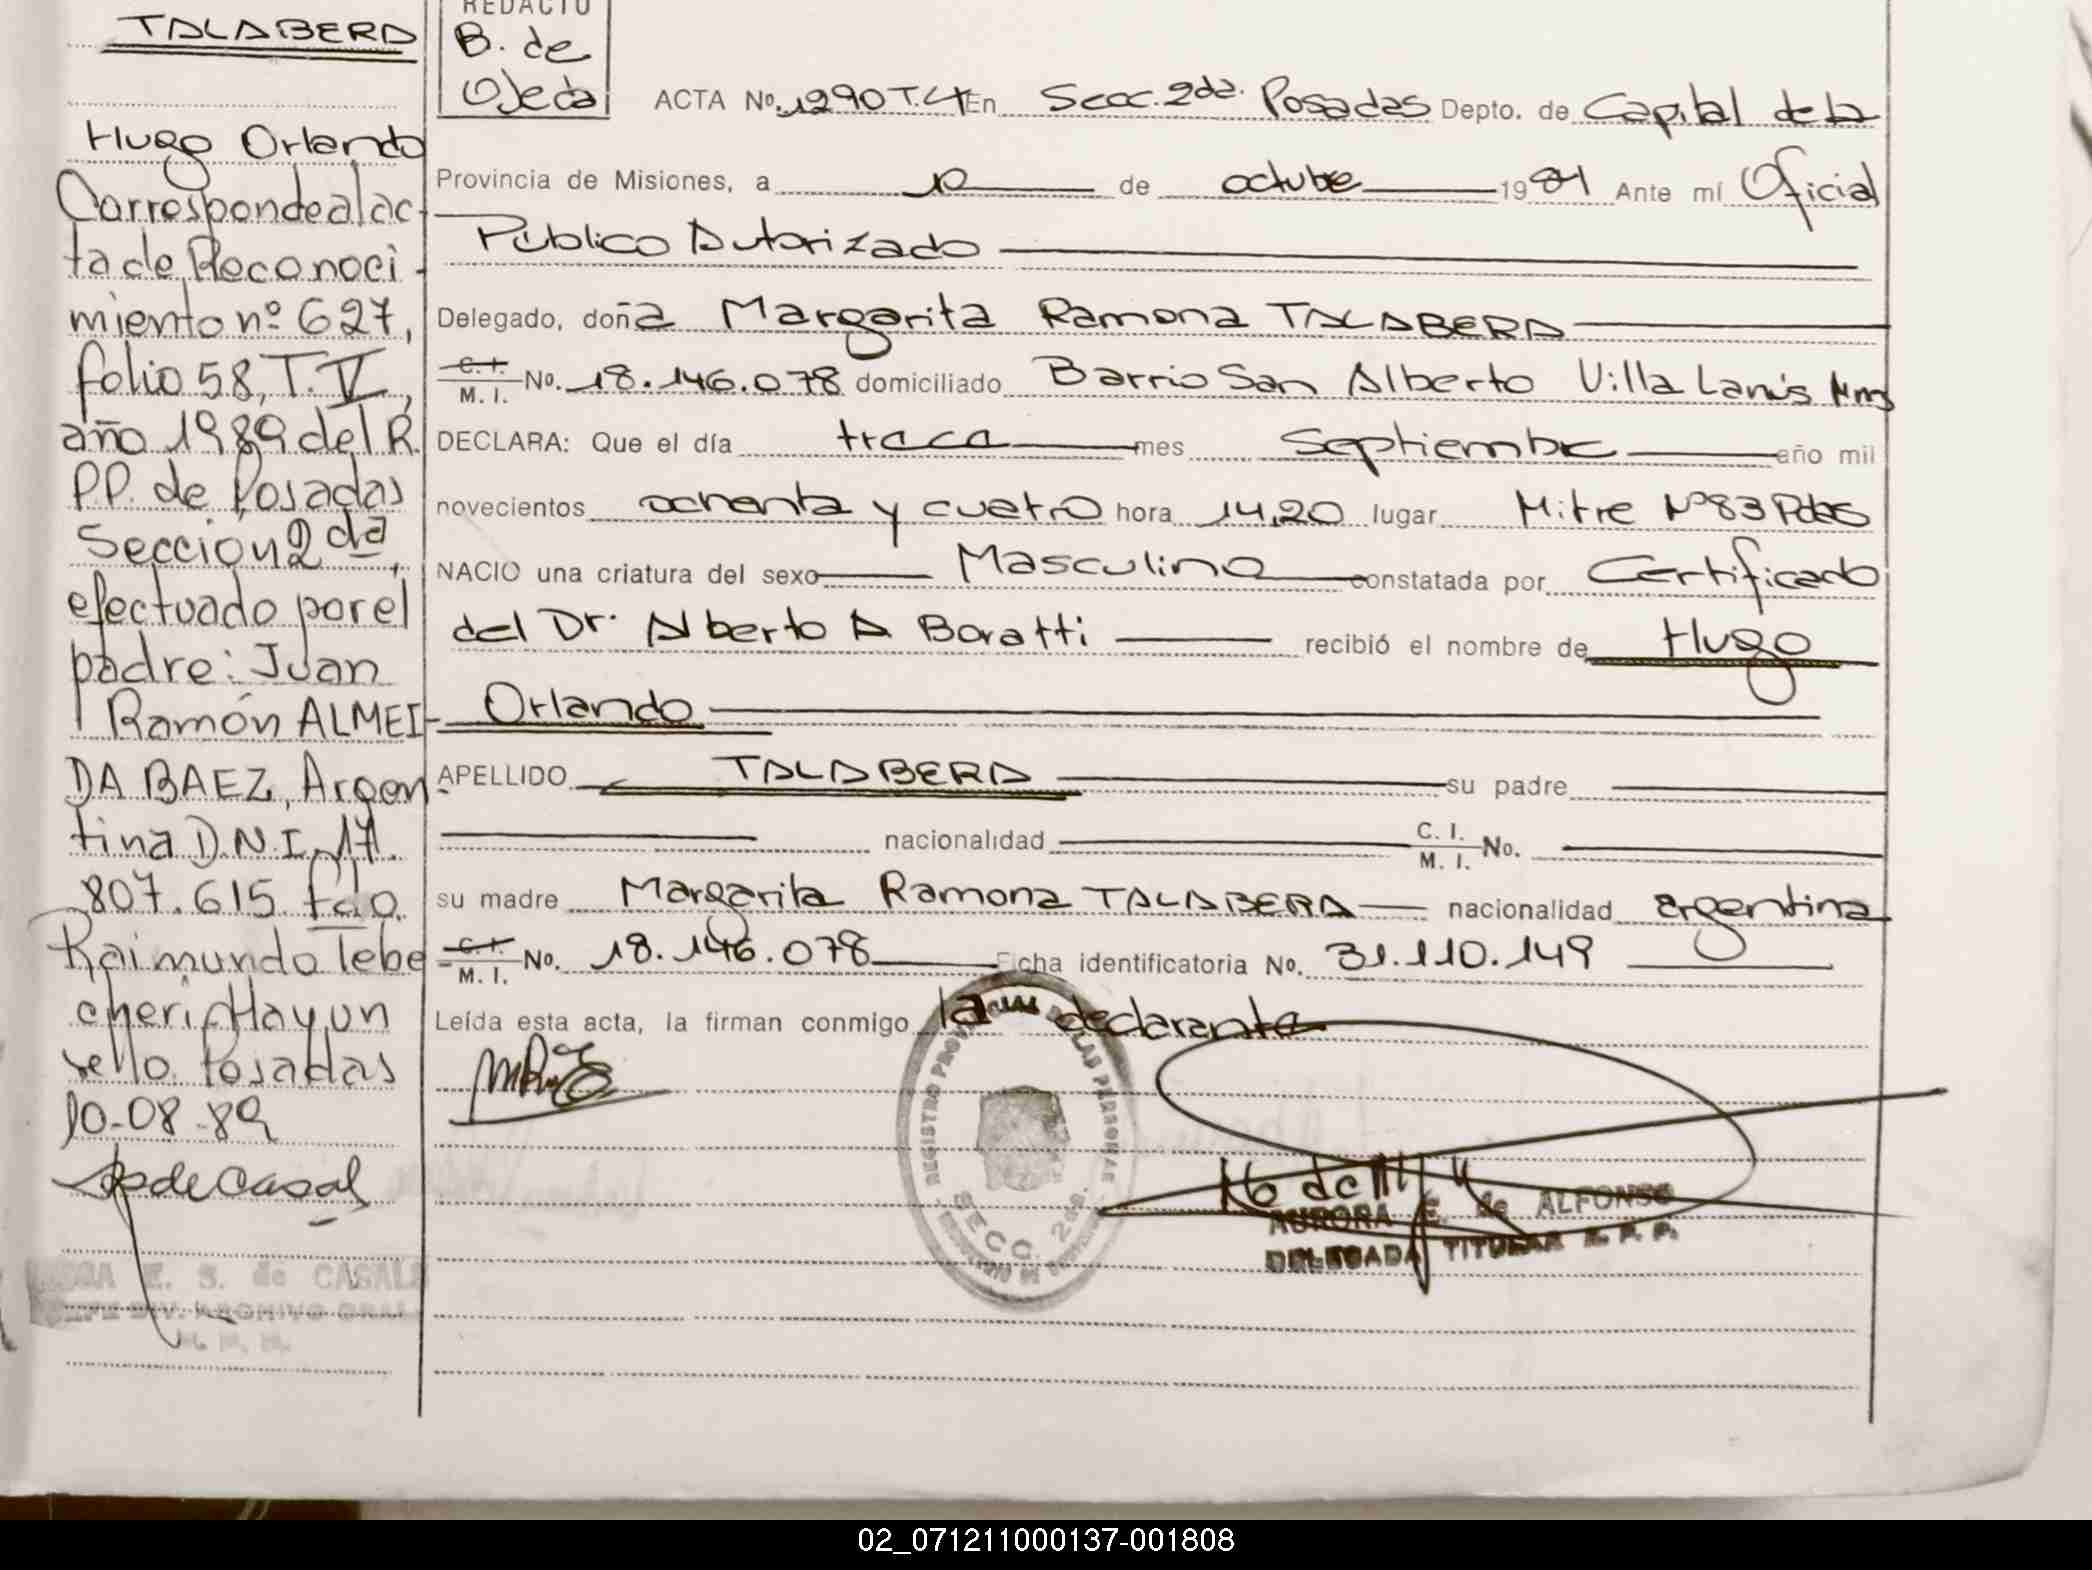 TALABERA
Hugo Orlando
Corresponde al ac-
ta de Reconoci-
miento nº 627,
folio 58, T. V,
año 1989 del R.
P.P. de Posadas
Sección 2da,
efectuado por el
padre: Juan
Ramón ALMEI-
DA BAEZ, Argen-
tina D.N.I. 17.
807.615. fdo.
Raimundo Tebe
cheri. Hay un
sello. Posadas
10-08-89
E. S. de CASALS
DIV. ARCHIVO GRAL.
REDACTO
B. de
Ojeda
ACTA No. 1290 T.4 En Secc. 2da. Posadas Depto. de Capital de la
Provincia de Misiones, a 10 de octubre 1984 Ante mí Oficial
Público Autorizado
Delegado, doña Margarita Ramona TALABERA
C. I. M. I. No. 18.146.078 domiciliado Barrio San Alberto Villa Lanús Mnes
DECLARA: Que el día trece mes Septiembre año mil
novecientos ochenta y cuatro hora 14,20 lugar Mitre Nº 83 Pdas
NACIO una criatura del sexo Masculino constatada por Certificado
del Dr. Alberto A Boratti recibió el nombre de Hugo
Orlando
APELLIDO TALABERA su padre
nacionalidad C. I. M. I. No.
su madre Margarita Ramona TALABERA nacionalidad argentina
C. I. M. I. No. 18.146.078 Ficha identificatoria No. 31.110.149
Leída esta acta, la firman conmigo la declarante
REGISTRO PROVINCIAL DE LAS PERSONAS
SECC. 2da.
AURORA E. de ALFONSO
DELEGADA TITULAR R. P. P.
02_071211000137-001808